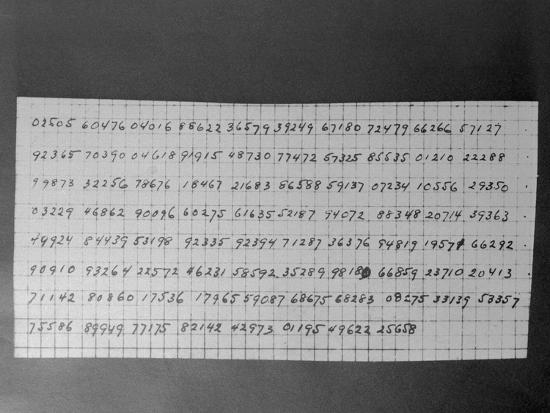 02505 60476 04016 88622 36579 39249 67180 72479 66266 57127
92365 70390 04618 91915 48730 77472 67325 85535 01210 22288
99873 32256 78676 18467 21683 86588 59137 07234 10556 29350
03229 46862 90096 60275 61635 52187 94072 88348 20714 39363
49924 84439 53198 92335 92394 71287 36376 94819 66292
90910 93264 22572 46231 58592 35289 66859 23710 20413
71142 80860 17536 17965 59087 68675 68283 08275 33139 53357
75586 89949 77175 82142 42973 01195 49622 25658